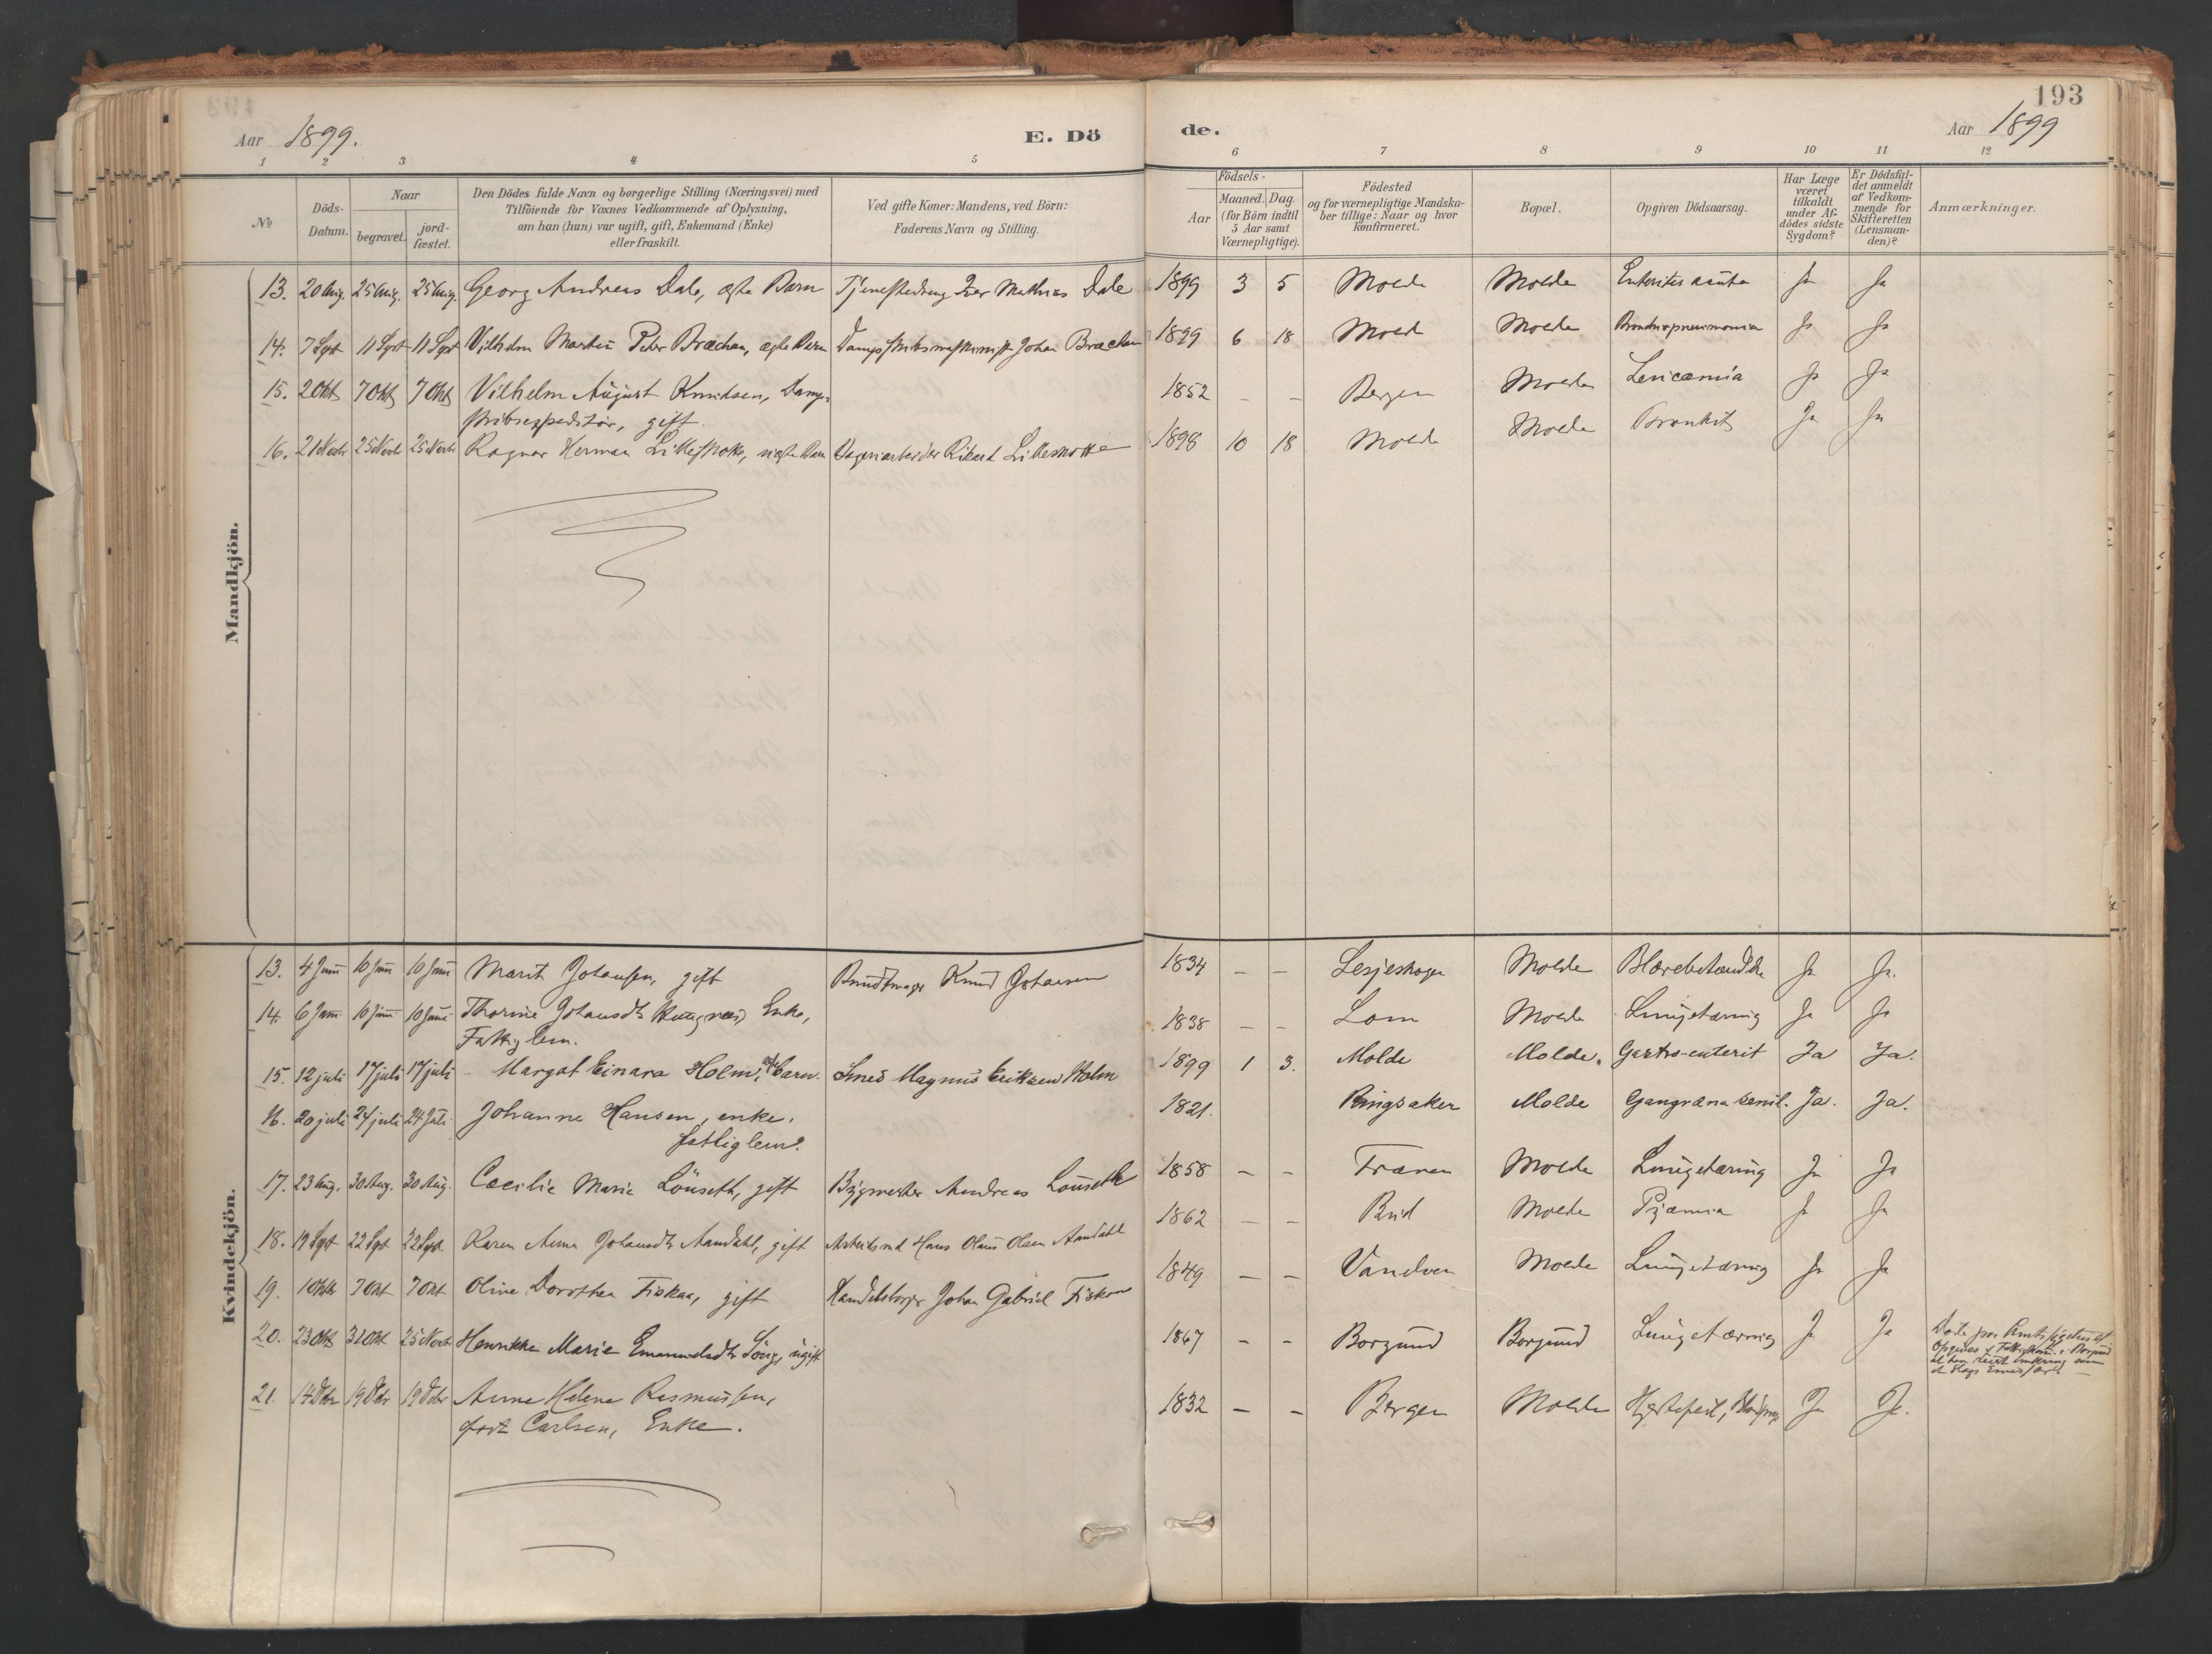 193
Aar 1899.
E. Dö
de.
Aar 1899
1 2 3 4 5
6 7 8 9 10 11 12
№
Döds-Datum.
Naar
begravet.
jord-fæstet.
Den Dödes fulde Navn og borgerlige Stilling (Næringsvei) med
Tilföiende for Voxnes Vedkommende af Oplysning,
om han (hun) var ugift, gift, Enkemand (Enke)
eller fraskilt.
Ved gifte Koner: Mandens, ved Börn:
Faderens Navn og Stilling.
Födsels-
Aar
Maaned. Dag.
(for Börn indtil
5 Aar samt
Værnepligtige).
Födested
og for værnepligtige Mandska-
ber tillige: Naar og hvor
konfirmeret.
Bopæl.
Opgiven Dödsaarsag.
Har Læge
været
tilkaldt
under Af-
dödes sidste
Sygdom?
Er Dödsfal-
det anmeldt
af Vedkom-
mende for
Skifteretten
(Lensman-
den)?
Anmærkninger.
Mandkjön.
13. 20 Aug. 25 Aug. 25 Aug. Georg Andreas Dale, ægte Barn Tjenestedreng Iver Mathias Dale 1899 3 5 Molde Molde Enteritis acuta Ja Ja
14. 7 Sept 11 Sept 11 Sept Vilhelm Martin Peter Brachan, ægte Barn Dampskibsmaskinist Johan 1899 6 18 Molde Molde Bronchopneumonia Ja Ja
15. 2 Okt 7 Okt 7 Okt Vilhelm August Knudsen, Damp- 1852 – – Bergen Molde Leucæmia Ja Ja
skibsexpeditör, gift.
16. 21 Novbr 25 Novbr 25 Novbr Ragnar Herman Lilleskotte, Barn Rikard Lilleskotte 1898 10 18 Molde Molde Bronkit Ja Ja
Kvindekjön.
13. 4 Juni 10 Juni 10 Juni Marit Johansen, gift Knud Johansen 1834 – – Lesjeskogen Molde Blærebetændelse Ja Ja.
14. 6 Juni 10 Juni 10 Juni Thorine Johansdtr Enke, 1838 – – Lom Molde Lungetæring Ja Ja
Fattiglem.
15. 12 juli 17 juli 17 juli Margot Einara Holm, ægte barn. Smed Magnus Eriksen Holm 1899 1 3. Molde Molde. Gastro-enterit Ja Ja.
16. 20 juli 24 juli 24 juli Johanne Hansen, enke. 1821. Ringsaker Molde Gangræna senil. Ja. Ja.
fattiglem.
17. 23 Aug. 30 Aug. 30 Aug. Cæcilie Marie Lönseth, gift Bygmester Andreas Lönseth 1858 – – Frænen Molde Lungetæring Ja Ja
18. 19 Sept 22 Sept 22 Sept. Karen Anna Johansdtr Aandahl, gift Arbeidsmd Hans Olaus Olsen Aandahl 1862 – – Bud Molde Pyæmia Ja Ja
19. 1 Oktbr 7 Okt 7 Okt Oline Dorothea Fiskaa, gift Handelsborger Johan Gabriel Fiskaa 1849 – – Vanelven Molde Lungetæring Ja Ja
20. 23 Okt 31 Okt 25 Novbr Henrikke Marie Emanuelsdtr ugift 1867 – – Borgund Borgund Lungetæring Ja Ja Döde paa Amtssygehuset
21. 14 Debr 19 Debr 19 Debr Anne Helene Rasmussen, 1832 – – Bergen Molde Hjertefeil, Ja Ja.
födt Carlsen, Enke.